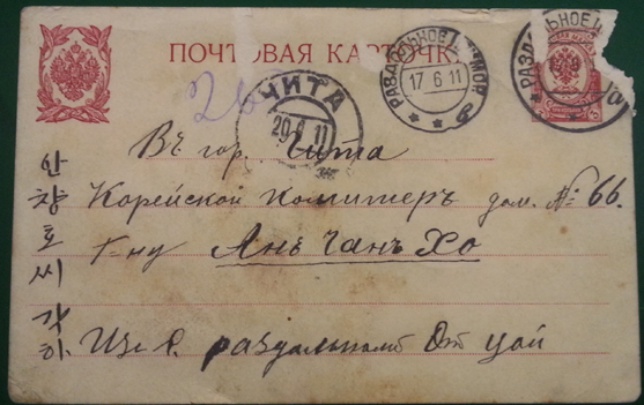 ПОЧТОВАЯ КАРТОЧКА
26
РАЗДОЛЬНОЕ ПРИМОР. в
17 6 11
РАЗДОЛЬНОЕ
ЧИТА
20 6 11
Въ гор. Чита
Корейской Комитетъ дом. № 66.
Г-ну Анъ Чанъ Хо
Изъ с. раздольном От Цой
안창호씨